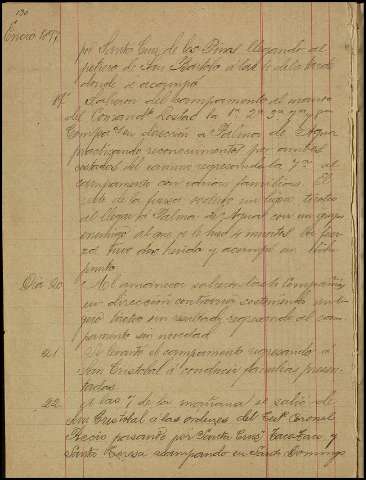 130
Enero 1897
por Santa Cruz de los Pinos llegando al
potrero de San Bartolo a las 6 de la tarde
donde se acampó
19. Salieron del campamento al mando
del Comandte Lostal la 1ª 2ª 3ª y 7ª
Compas en dirección a Palma de Agua
practicando reconocimientos por ambos
costados del camino regresando la 7ª al
campamento con varias familias. El
resto de la fuerza sostuvo un ligero tiroteo
al llegar a Palma de Agua con un grupo
enemigo al que se le hizo 2 muertos. La fuer
za tuvo dos heridos y acampó en dicho
punto
Dia 20 Al amanecer salieron las Compañias
en dirección contraria sosteniendo un li-
gero tiroteo sin resultado, regresando al cam-
pamento sin novedad.
21. Se levantó el campamento regresando á
San Cristobal á conducir familias presen-
tadas.
22. A las 7 de la mañana se salió de
San Cristobal á las ordenes del Tente Coronel
Recio pasando por Santa Cruz, Taco Taco, y
Santa Teresa acampando en Santo Domingo